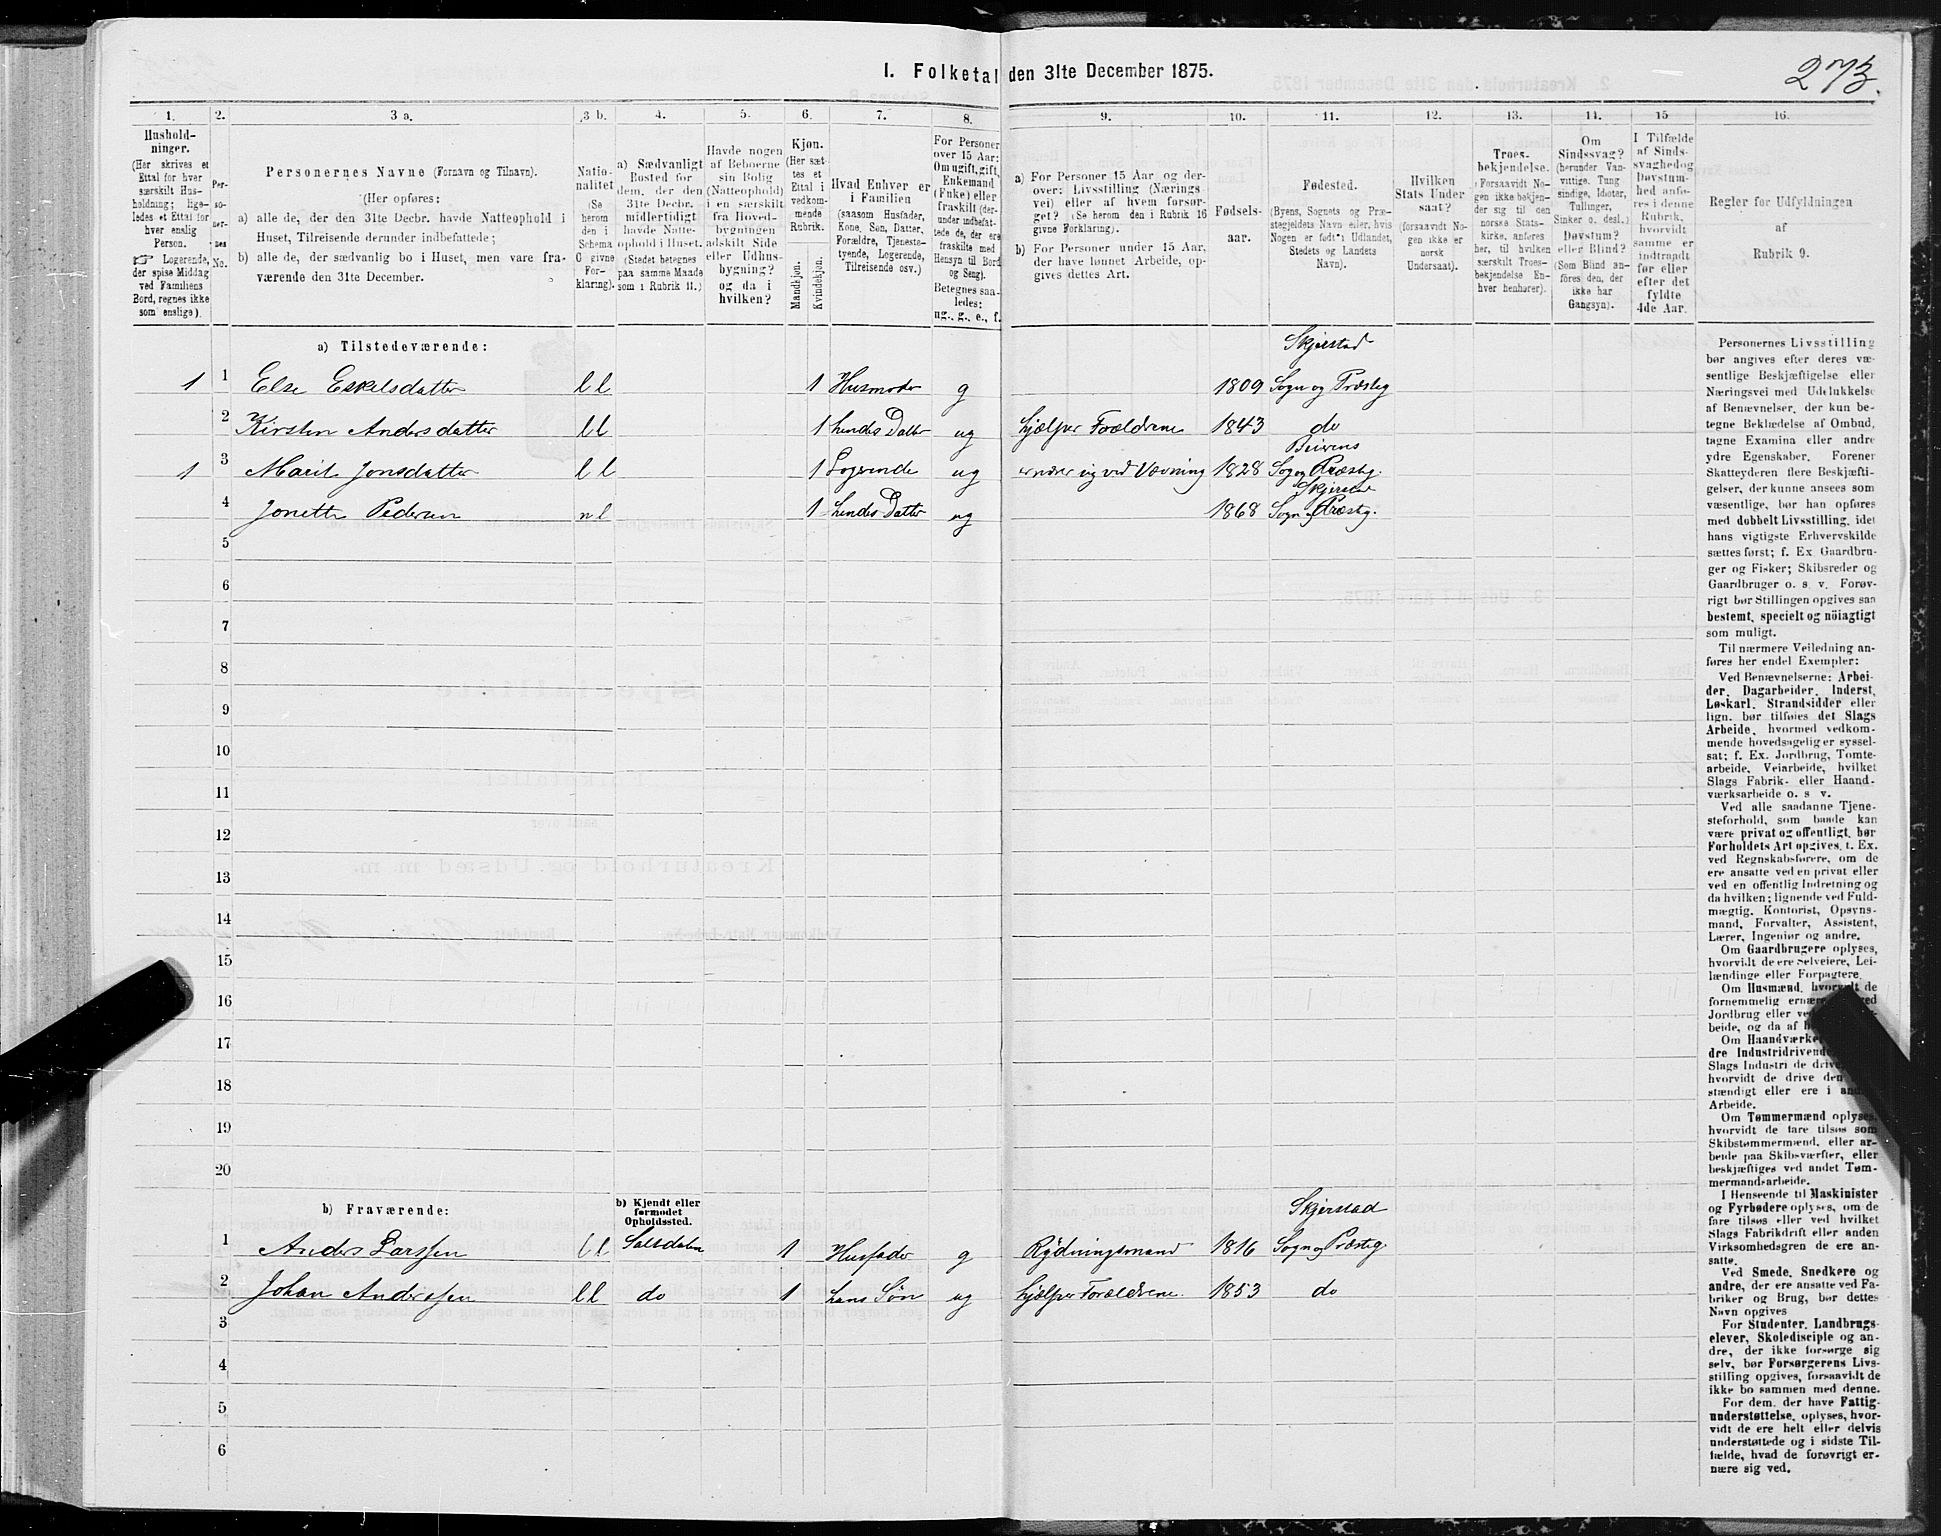 I. Folketal den 31te December 1875.
273.
1.
Hushold-
ninger.
(Her skrives et
Ettal for hver
særskilt Hus-
holdning; lige-
ledes et Ettal for
hver enslig
Person.
☞ Logerende,
der spise Middag
ved Familiens
Bord, regnes ikke
som enslige).
2.
Per-
so-
ner-
nes
No.
3 a.
Personernes Navne (Fornavn og Tilnavn).
(Her opføres:
a) alle de, der den 31te Decbr. havde Natteophold i
Huset, Tilreisende derunder indbefattede;
b) alle de, der sædvanlig bo i Huset, men vare fra-
værende den 31te December.
3 b.
Natio-
nalitet
(Se
herom
den i
Schema
C givne
For-
klaring).
4.
a) Sædvanligt
Bosted for
dem, der den
31te Decbr.
midlertidigt
havde Natte-
ophold i Huset.
(Stedet betegnes
paa samme Maade
som i Rubrik 11.)
5.
Havde nogen
af Beboerne
sin Bolig
(Natteophold)
i en særskilt
fra Hoved-
bygningen
adskilt Side
eller Udhus-
bygning?
og da i
hvilken?
6.
Kjøn.
(Her sæt-
tes et
Ettal i
vedkom-
mende
Rubrik.
Mandkjøn.
Kvindekjøn.
7.
Hvad Enhver er
i Familien
(saasom Husfader,
Kone, Søn, Datter,
Forældre, Tjeneste-
tyende, Logerende,
Tilreisende osv.)
8.
For Personer
over 15 Aar:
Om ugift, gift,
Enkemand
(Enke) eller
fraskilt (der-
under indbefat-
tede de, der ere
fraskilte med
Hensyn til Bord
og Seng).
Betegnes saa-
ledes:
ug., g., e., f.
9.
a) For Personer 15 Aar og der-
over: Livsstilling (Nærings-
vei) eller af hvem forsør-
get? (Se herom den i Rubrik 16
givne Forklaring).
b) For Personer under 15 Aar,
der have lønnet Arbeide, op-
gives dettes Art.
10.
Fødsels-
aar.
11.
Fødested.
(Byens, Sognets og Præ-
stegjeldets Navn eller, hvis
Nogen er født i Udlandet,
Stedets og Landets
Navn).
12.
Hvilken
Stats Under
saat?
(forsaavidt No-
gen ikke er
norsk
Undersaat).
13.
Troes-
bekjendelse.
(Forsaavidt No-
gen ikke bekjen-
der sig til den
norske Stats-
kirke, anføres
her, til hvilken
særskilt Troes-
bekjendelse En-
hver henhører).
14.
Om
Sindssvag?
(herunder Van-
vittige, Tung
sindige, Idioter,
Tullinger,
Sinker o. desl.)
Døvstum?
eller Blind?
(Som Blind an-
føres den, der
ikke har
Gangsyn).
15
I Tilfælde
af Sinds-
svaghed og
Døvstum-
hed anfø-
res i denne
Rubrik,
hvorvidt
samme er
indtraadt
før eller
efter det
fyldte
4de Aar.
16.
Regler for Udfyldningen
af
Rubrik 9.
a) Tilstedeværende:
Skjerstad
1 1 Else Eskelsdatter ll 1 Husmoder g 1809 Sogn og Præsteg
2 Kirsten Andersdatter ll 1 hendes Datter ug hjælper Forældrene 1843 do
Beierens
1 3 Marit Jonsdatter ll 1 Logerende ug ernærer sig ved Vævning 1828 Sogn og Præsteg.
Skjerstad
4 Jonette Pedersen nl 1 hendes Datter ug 1868 Sogn og Præsteg.
5
6
7
8
9
10
11
12
13
14
15
16
17
18
19
20
b) Fraværende:
b) Kjendt eller
formodet
Opholdssted.
Skjerstad
1 Anders Larssen ll Saltdalen 1 Husfader g Rydningsmand 1816 Sogn og Præsteg.
2 Johan Anderssen ll do 1 hans Søn ug hjælper Forældrene. 1853 do
3
4
5
6
Personernes Livsstilling
bør angives efter deres væ-
sentlige Beskjæftigelse eller
Næringsvei med Udelukkelse
af Benævnelser, der kun be-
tegne Beklædelse af Ombud,
tagne Examina eller andre
ydre Egenskaber. Forener
Skatteyderen flere Beskjæfti-
gelser, der kunne ansees som
væsentlige, bør han opføres
med dobbelt Livsstilling, idet
hans vigtigste Erhvervskilde
sættes først; f. Ex Gaardbru-
ger og Fisker; Skibsreder og
Gaardbruger o. s. v. Forøv-
rigt bør Stillingen opgives saa
bestemt, specielt og nöiagtigt
som muligt.
Til nærmere Veiledning an-
føres her endel Exempler:
Ved Benævnelserne: Arbei-
der, Dagarbeider, Inderst,
Løskarl, Strandsidder eller
lign. bør tilføies det Slags
Arbeide, hvormed vedkom-
mende hovedsagelig er syssel-
sat; f. Ex. Jordbrug, Tomte-
arbeide, Veiarbeide, hvilket
Slags Fabrik- eller Haand-
værksarbeide o. s v.
Ved alle saadanne Tjene-
steforhold, som baade kan
være privat og offentligt, bør
Forholdets Art opgives, t. Ex.
ved Regnskabsførere, om de
ere ansatte ved en privat eller
ved en offentlig Indretning og
da hvilken; lignende ved Fuld-
mægtig, Kontorist, Opsyns-
mand, Forvalter, Assistent,
Lærer, Ingeniør og andre.
Om Gaardbrugere oplyses,
hvorvidt de ere Selveiere, Lei-
lændinge eller Forpagtere.
Om Husmænd, hvorvidt de
fornemmelig ernære ved
Jordbrug eller
beide, og da af
Om Haandværke
dre Industridrivende
Slags Industri de drive
hvorvidt de drive den
stændigt eller ere i
Arbeide.
Om Tømmermænd oplyses,
hvorvidt de fare tilsøs som
Skibstømmermænd, eller ar-
beide paa Skibsværfter, eller
beskjæftiges ved andet Tøm-
mermandsarbeide.
I Henseende til Maskinister
og Fyrbødere oplyses, om de
fare tilsøs eller ved hvilket
Slags Fabrikdrift eller anden
Virksomhedsgren de ere an-
satte.
Ved Smede, Snedkere og
andre, der ere ansatte ved Fa-
briker og Brug, bør dettes
Navn opgives
For Studenter, Landbrugs-
elever, Skoledisciple og an-
dre, der ikke forsørge sig
selv, bør Forsørgerens Livs-
stilling opgives, forsaavidt de
ikke bo sammen med denne.
For dem, der have Fattig-
understøttelse, oplyses, hvor-
vidt de ere helt eller delvis
understøttede og i sidste Til-
fælde, hvad de forøvrigt er-
nære sig ved.